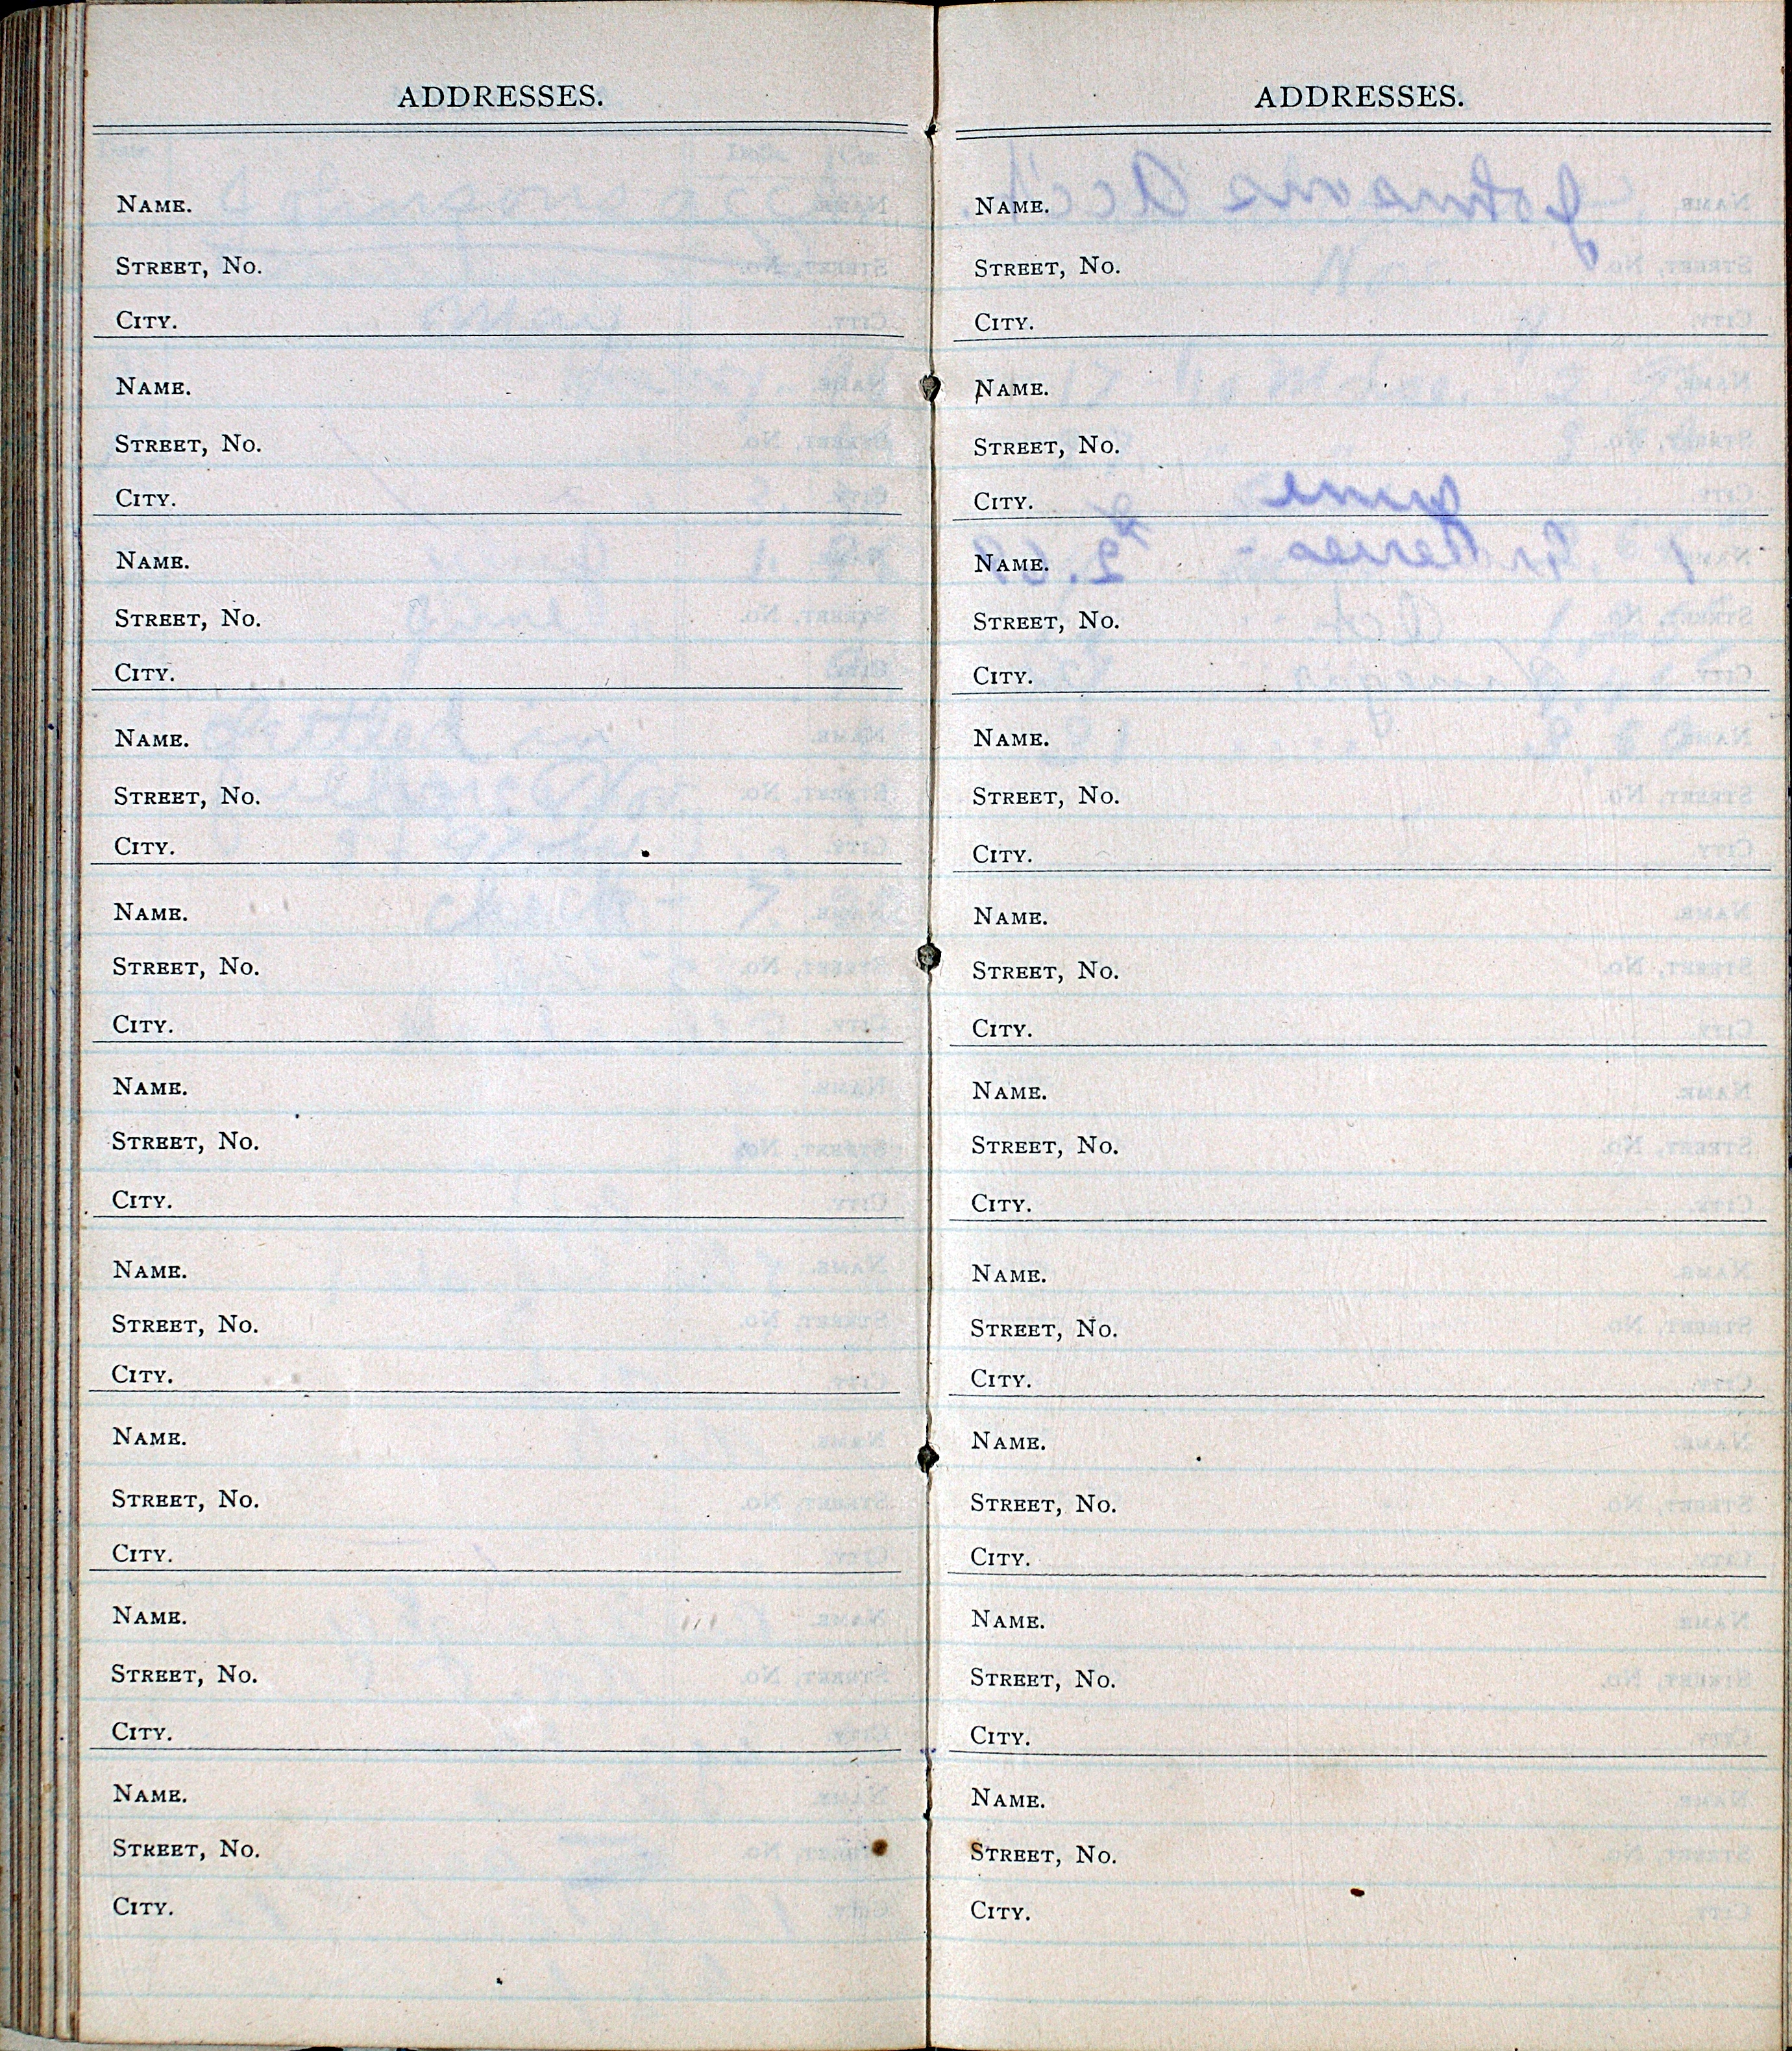 ADDRESSES.
NAME.
STREET, NO.
CITY.
NAME.
STREET, NO.
CITY.
NAME.
STREET, NO.
CITY.
NAME.
STREET, NO.
CITY.
NAME.
STREET, NO.
CITY.
NAME.
STREET, NO.
CITY.
NAME.
STREET, NO.
CITY.
NAME.
STREET, NO.
CITY.
NAME.
STREET, NO.
CITY.
NAME.
STREET, NO.
CITY.
ADDRESSES.
NAME.
STREET, NO.
CITY.
NAME.
STREET, NO.
CITY.
NAME.
STREET, NO.
CITY.
NAME.
STREET, NO.
CITY.
NAME.
STREET, NO.
CITY.
NAME.
STREET, NO.
CITY.
NAME.
STREET, NO.
CITY.
NAME.
STREET, NO.
CITY.
NAME.
STREET, NO.
CITY.
NAME.
STREET, NO.
CITY.